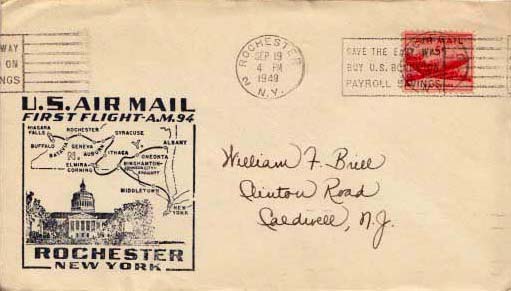 WAY
ON
NGS
ROCHESTER
2
SEP 19
4 PM
1949
N.Y.
AIR MAIL
SAVE THE EASY WAY
BUY U.S. BONDS ON
PAYROLL SAVINGS
U.S. AIR MAIL
FIRST FLIGHT-A.M. 94
NIAGARA FALLS
ROCHESTER
SYRACUSE
ALBANY
BUFFALO
BATAVIA
GENEVA
AUBURN
ITHACA
ONEONTA
ELMIRA-
CORNING
BINGHAMTON-
JOHNSON CITY-
ENDICOTT
MIDDLETOWN
NEW
YORK
ROCHESTER
NEW YORK
William F. Brill
Clinton Road
Caldwell, N.J.